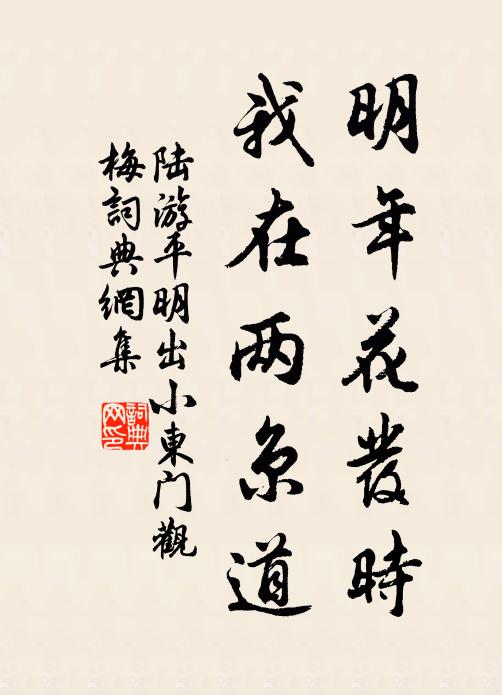 明年花發時
我在两京道
陆游平明出小東门觀
梅詞典網集
詞典网印